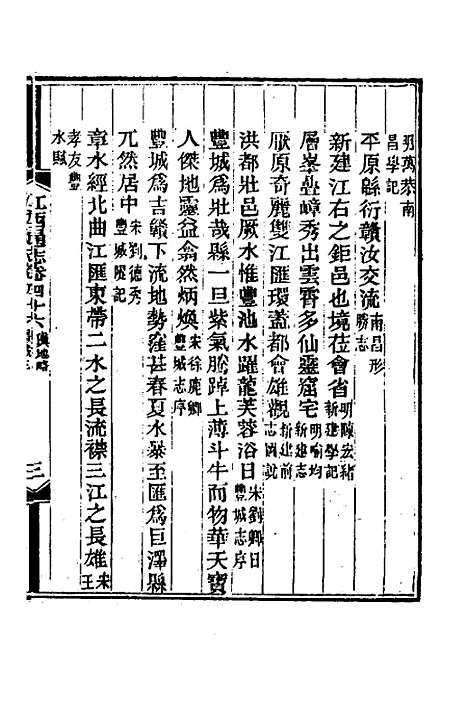 昌學記
平原緜衍贛汝交流南昌形
新建江右之鉅邑也境莅會省明陳宏緒新建學記
層峯疊嶂秀出雲霄多仙靈窟宅明喻均新建志
厥原奇麗雙江匯環蓋都會雄觀新建前志圖說
洪都壯邑厥水惟豐池水躍龍芙蓉浴日宋劉卿日豐城志序
豐城爲壯哉縣一旦紫氣騰踔上薄斗牛而物華天寶
人傑地靈益翕然炳煥宋徐鹿卿豐城志序
豐城爲吉贛下流地勢窪甚春夏水暴至匯爲巨澤縣
兀然居中宋劉德秀豐城隄記
章水經北曲江匯東帶二水之長流襟三江之長雄宋王
孝友豐水賦
江西通志卷四十六輿地略
三